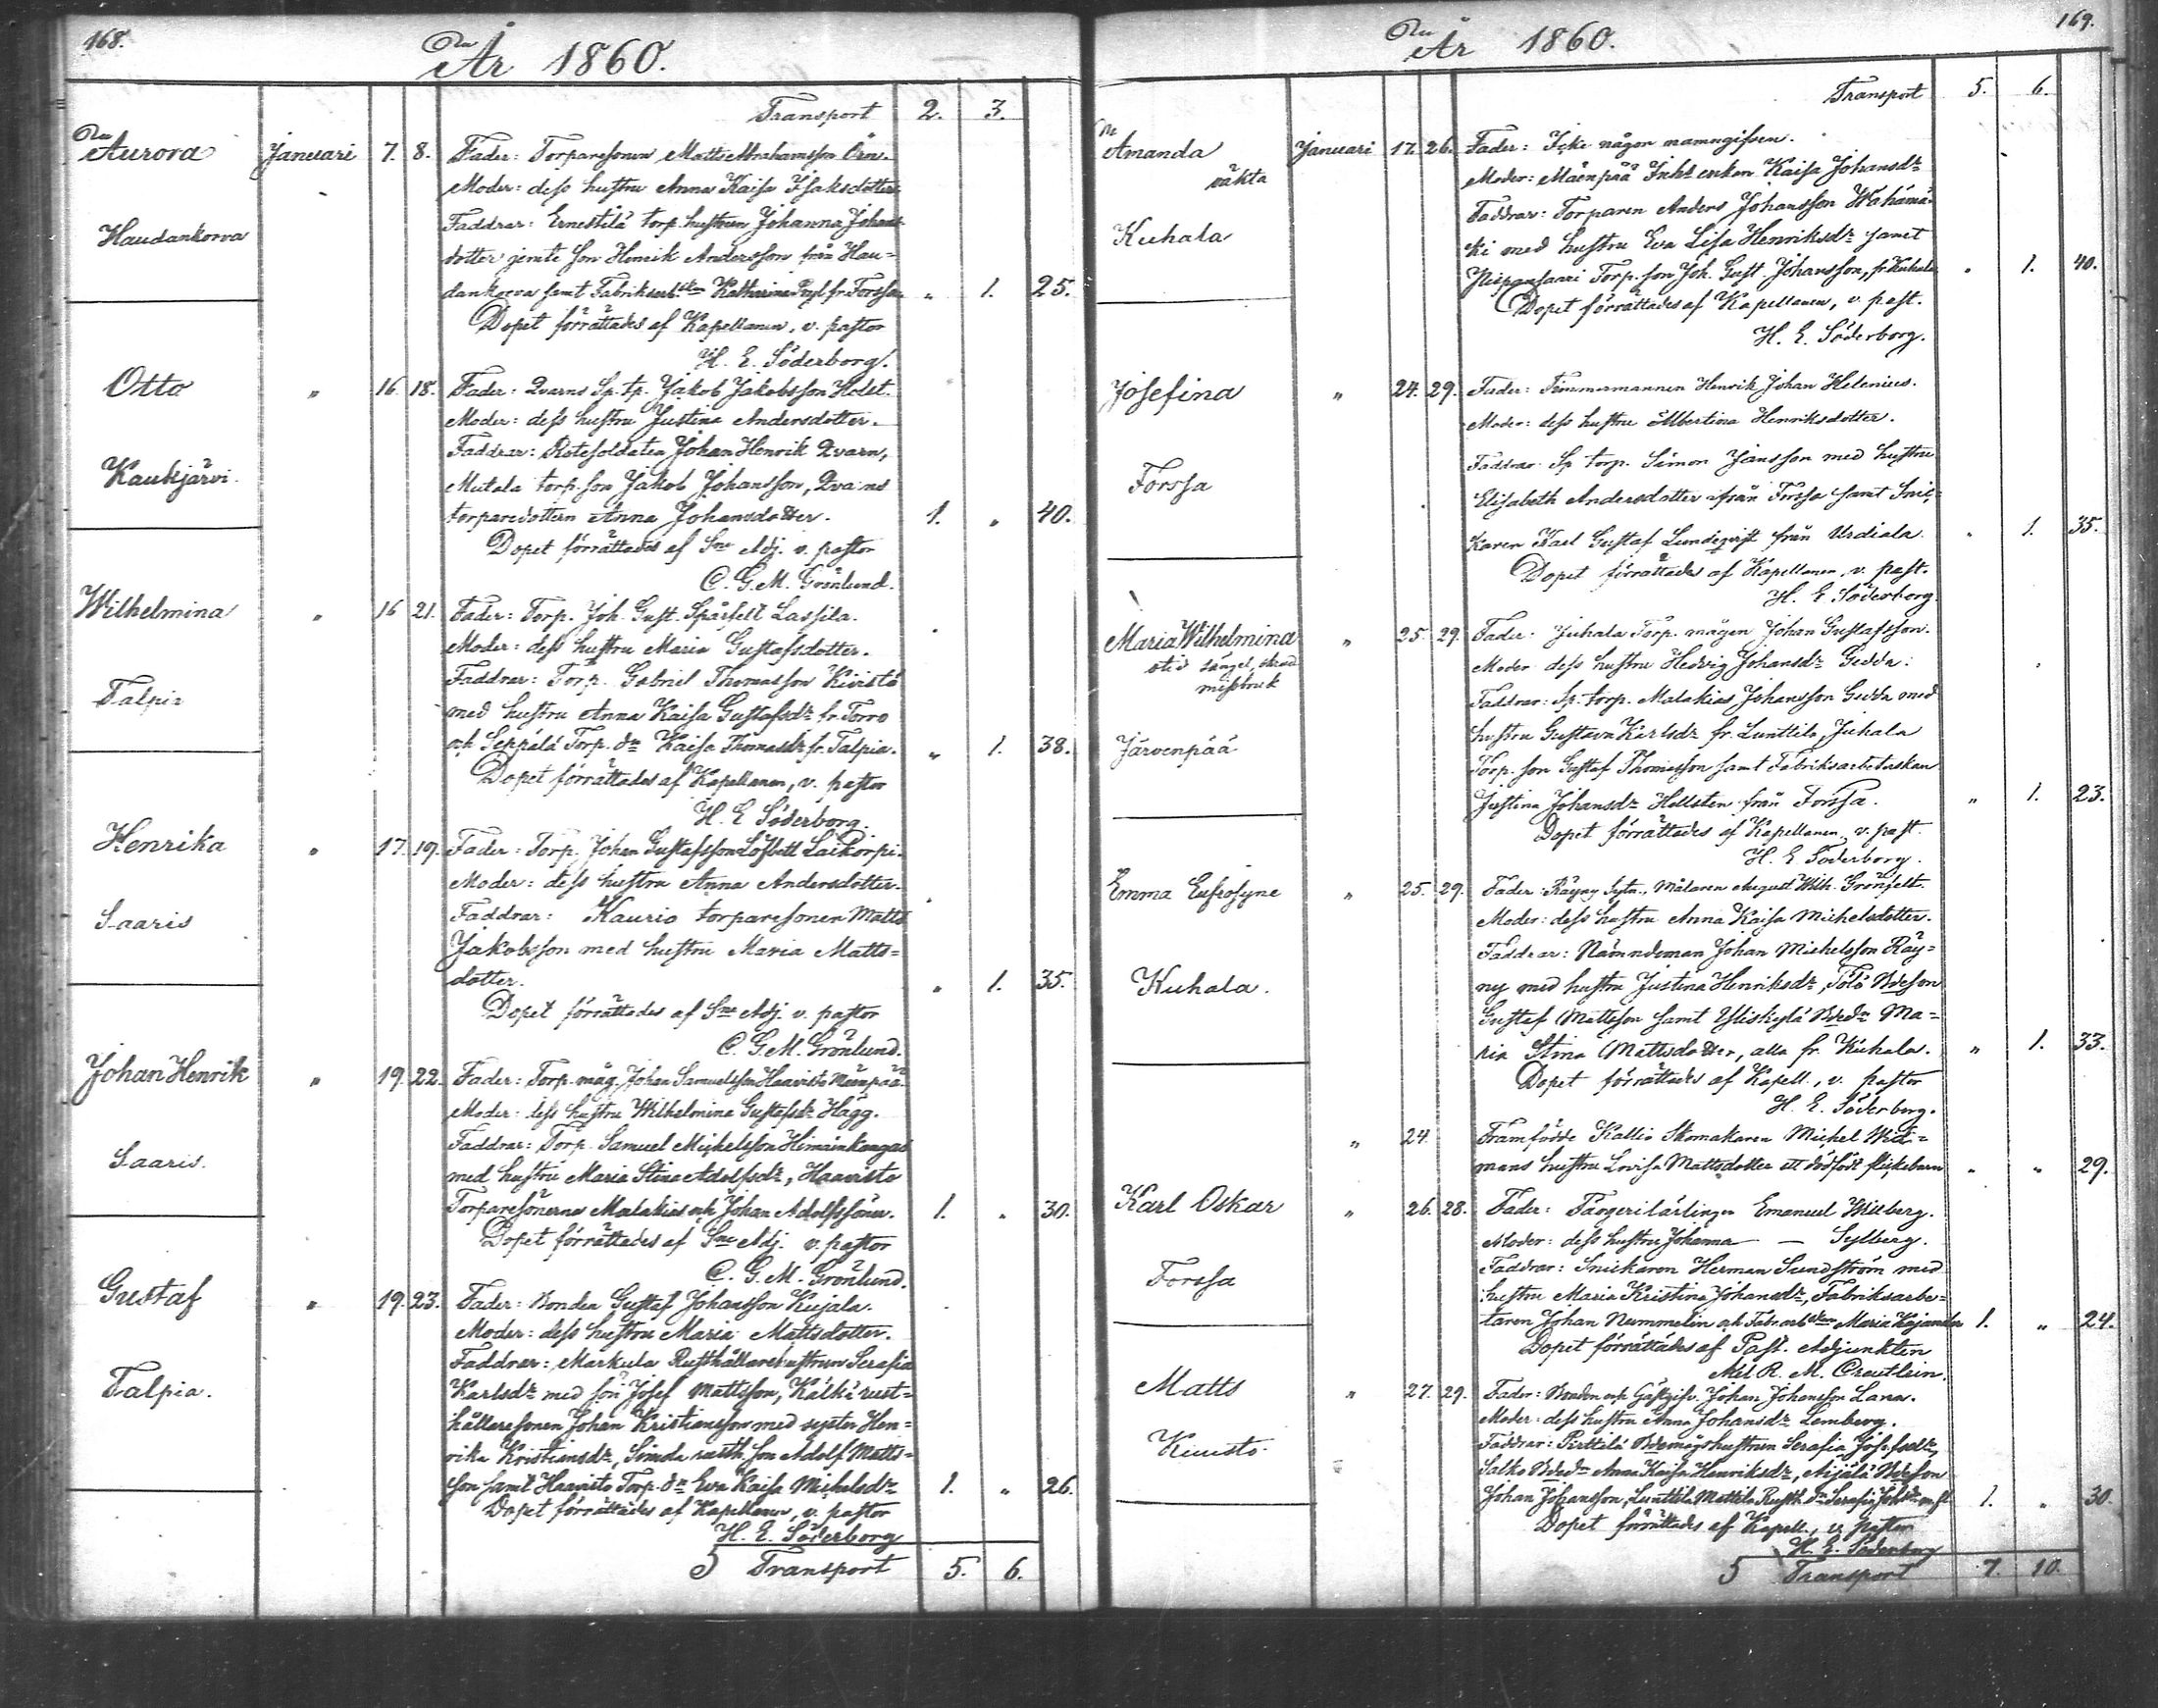 168.
År 1860.
Transport 2. 3.
Aurora Januari 7. 8. Fader: Torparesonen Matts Abrahamsson Örn.
Moder: dess hustru Anna Kaisa Isaksdotter.
Haudankorva
Faddrar: Ernestilä torp. hustrun Johanna Johans
dotter jemte son Henrik Andersson från Hau=
dankorva samt Fabriksarb. Katharina fr. Forssa „ 1. 25.
Dopet förrättades af Kapellanen, v. pastor
H. E. Söderborg.
Otto „ 16. 18. Fader: Qvarns Sp. tp. Jakob Jakobsson Holst.
Moder: dess hustru Justina Andersdotter.
Kaukjärvi.
Faddrar: Rotesoldaten Johan Henrik Qvarn,
Mutala torp. son Jakob Johansson, Qvarns
torparedottern Anna Johansdotter. 1. „ 40.
Dopet förrättades af Sne Adj. v. pastor
C. G. M. Grönlund.
Wilhelmina „ 16 21. Fader: Torp. Joh. Gust. Spårfelt Lassila.
Moder: dess hustru Maria Gustafsdotter.
Talpia
Faddrar: Torp. Gabriel Thomasson Kivistö
med hustru Anna Kaisa Gustafsdr fr. Torro
och Seppälä Torp. dn Kaisa Thomasdr fr. Talpia. „ 1. 38.
Dopet förrättades af Kapellanen, v. pastor
H. E. Söderborg.
Henrika „ 17. 19. Fader: Torp. Johan Gustafsson Löfbett Laikorpi.
Moder: dess hustru Anna Andersdotter.
Saaris
Faddrar: Kaurio torparesonen Matts
Jakobsson med hustru Maria Matts=
dotter. „ 1. 35.
Dopet förrättades af Sne Adj. v. pastor
C. G. M. Grönlund.
Johan Henrik „ 19. 22. Fader: Torp. måg. Johan Samuelsson Haavisto Mäenpää.
Moder: dess hustru Wilhelmina Gustafsdr Hägg.
Saaris.
Faddrar: Torp. Samuel Michelsson Heinänkangas
med hustru Maria Stina Adolfsdr, Haavisto
Torparesönerna Malakias och Johan Adolfssöner. 1. „ 30.
Dopet förrättades af Sne Adj. v. pastor
C. G. M. Grönlund.
Gustaf „ 19. 23. Fader: Bonden Gustaf Johansson Kujala.
Moder: dess hustru Maria Mattsdotter.
Talpia.
Faddrar: Markula Rusthållarehustrun Serafia
Karlsdr med son Josef Mattsson, Kälkä rust=
hållaresonen Johan Kristiansson med syster Hen=
rika Kristiansdr, Simola rusth. son Adolf Matts=
son samt Haavisto Torp. dn Eva Kaisa Michelsdr 1. „ 26.
Dopet förrättades af Kapellanen, v. pastor
H. E. Söderborg
5 Transport 5. 6.
169.
År 1860.
Transport 5. 6.
Amanda Januari 17. 26. Fader: Icke någon namngifven.
oäkta
Moder: Mäenpää Inht enkan Kaisa Johansdr
Kuhala
Faddrar: Torparen Anders Johansson Wahämä
ki med hustru Eva Lisa Henriksdr samt
Torp. son Joh. Gust. Johansson, fr. Kuhala „ 1. 40.
Dopet förrättades af Kapellanen, v. past.
H. E. Söderborg.
Josefina „ 24. 29. Fader: Timmermannen Henrik Johan Helenius.
Moder: dess hustru Albertina Henriksdotter.
Forssa
Faddrar: Sp torp. Simon Jansson med hustru
Elisabeth Andersdotter från Forssa samt Snic=
karen Karl Gustaf Lundqvist från Urdiala. „ 1. 35.
Dopet förrättades af Kapellanen, v. past.
H. E. Söderborg.
Maria Wilhelmina „ 25. 29. Fader: Juhala Torp. mågen Johan Gustafsson.
Moder dess hustru Hedvig Johansdr Gedda.
missbruk
Järvenpää
Faddrar: Sp. torp. Malakias Johansson Gedda med
hustru Gustava Karlsdr fr. Lunttila, Juhala
Torp. son Gustaf Thomasson samt Fabriksarbeterskan
Justina Johansdr Hellsten från Forssa. „ 1. 23.
Dopet förrättades af Kapellanen, v. past.
H. E. Söderborg.
Emma Eufrosyne „ 25. 29. Fader: Räyny Sytn., Målaren August Wilh. Grönfelt.
Moder: dess hustru Anna Kaisa Michelsdotter.
Kuhala.
Faddrar: Nämndeman Johan Michelsson Räy=
ny med hustru Justina Henriksdr, Tolo Bdeson
Gustaf Mattsson samt Yliskylä Bdedn Ma=
ria Stina Mattsdotter, alla fr. Kuhala. „ 1. 33.
Dopet förrättades af Kapell., v. pastor
H. E. Söderborg.
„ 24. Framfödde Kallio Skomakaren Michel Wid=
mans hustru Lovisa Mattsdotter ett dödfödt flickebarn „ „ 29.
Karl Oskar „ 26. 28. Fader: Färgerilärlingen Emanuel Wilberg.
Moder: dess hustru Johanna — Sylberg.
Forssa
Faddrar: Snickaren Herman Sundström med
hustru Maria Kristina Johansdr, Fabriksarbe=
taren Johan Nummelin och Fabr. arb. Maria Kajander 1. „ 24.
Dopet förrättades af Past. Adjunkten
Abl R. M. Creutlein.
Matts „ 27. 29. Fader: Bonden och Gästgifv. Johan Johansson Lana.
Moder: dess hustru Anna Johansdr Lemberg.
Kuusto
Faddrar: Perttilä Bdemågshustrun Serafia Josefsdr,
Salko Bdedn Anna Kaisa Henriksdr, Äijälä Bdeson
Johan Johansson, Lunttila Mattila Rusth. dn Serafia 1. „ 30.
Dopet förrättades af Kapell., v. pastor
H. E. Söderborg
5 Transport 7. 10.